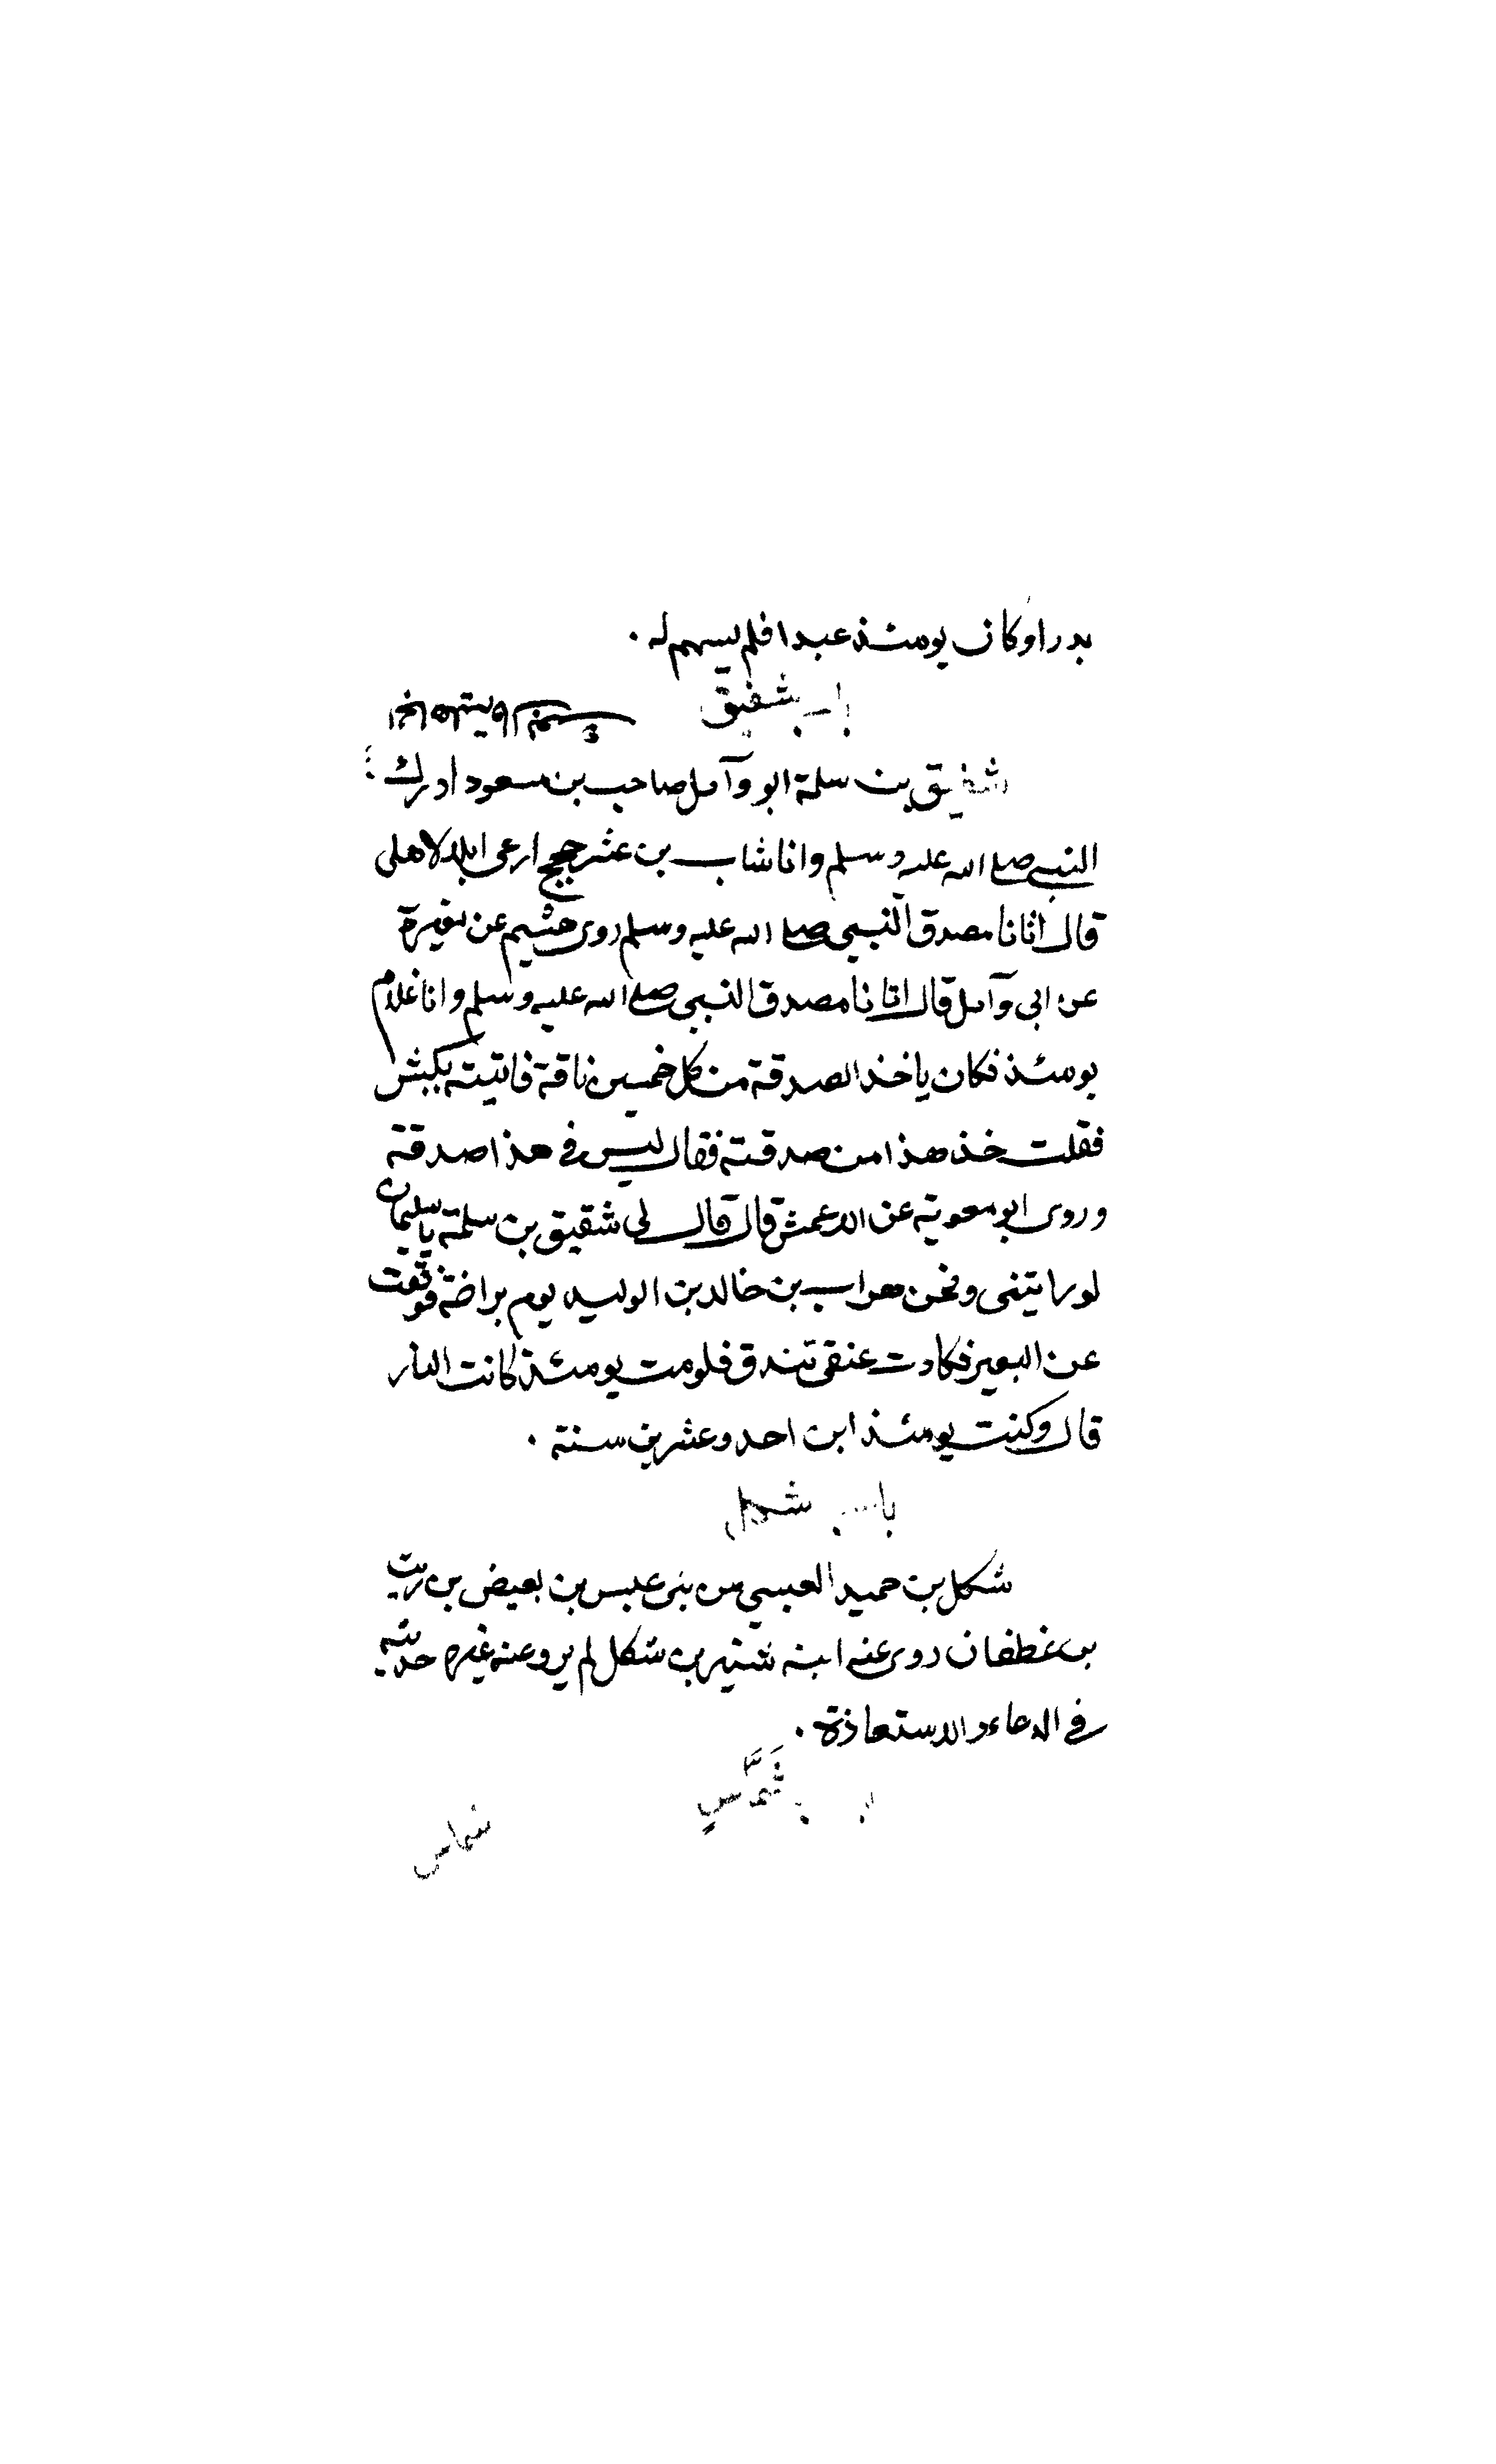 بدرا وكان يومئذ عبدا فلم يسهم له .
باب شقيق
شقيق بن سلمة ابو وآمل صاحب بن مسعود ادرك
النبي صلى الله عليه وسلم وانا شاب بن عشر حجج ارعى ابلا لاهلى
قال اتانا مصدق النبي صلى الله عليه وسلم روى هشيم عن مغيرة
عن ابى وآمل قال اتانا مصدق النبي صلى الله عليه وسلم وانا غلام
يومئذ فكان ياخذ الصدقة من كل خمسين ناقة فاتيته بكبش
فقلت خذ هذا من صدقته فقال ليس فى هذا صدقة
وروى ابو معوية عن الاعمش قال قال لى شقيق بن سلمة يا سليمان
لو رايتنى ونحن هراب بن خالد بن الوليد يوم بزاخة فوقعت
عن البعير فكادت عنقى تندق فلو مت يومئذ كانت النار
قال وكنت يومئذ ابن احد وعشرين سنة .
باب شكل
شكل بن حميد العبسي من بنى عبس بن بغيض بن ريث
بن غطفان روى عنه ابنه شتير بن شكل لم يرو عنه غيره حديثه
فى الدعاء والاستعاذة .
باب شماس
شماس